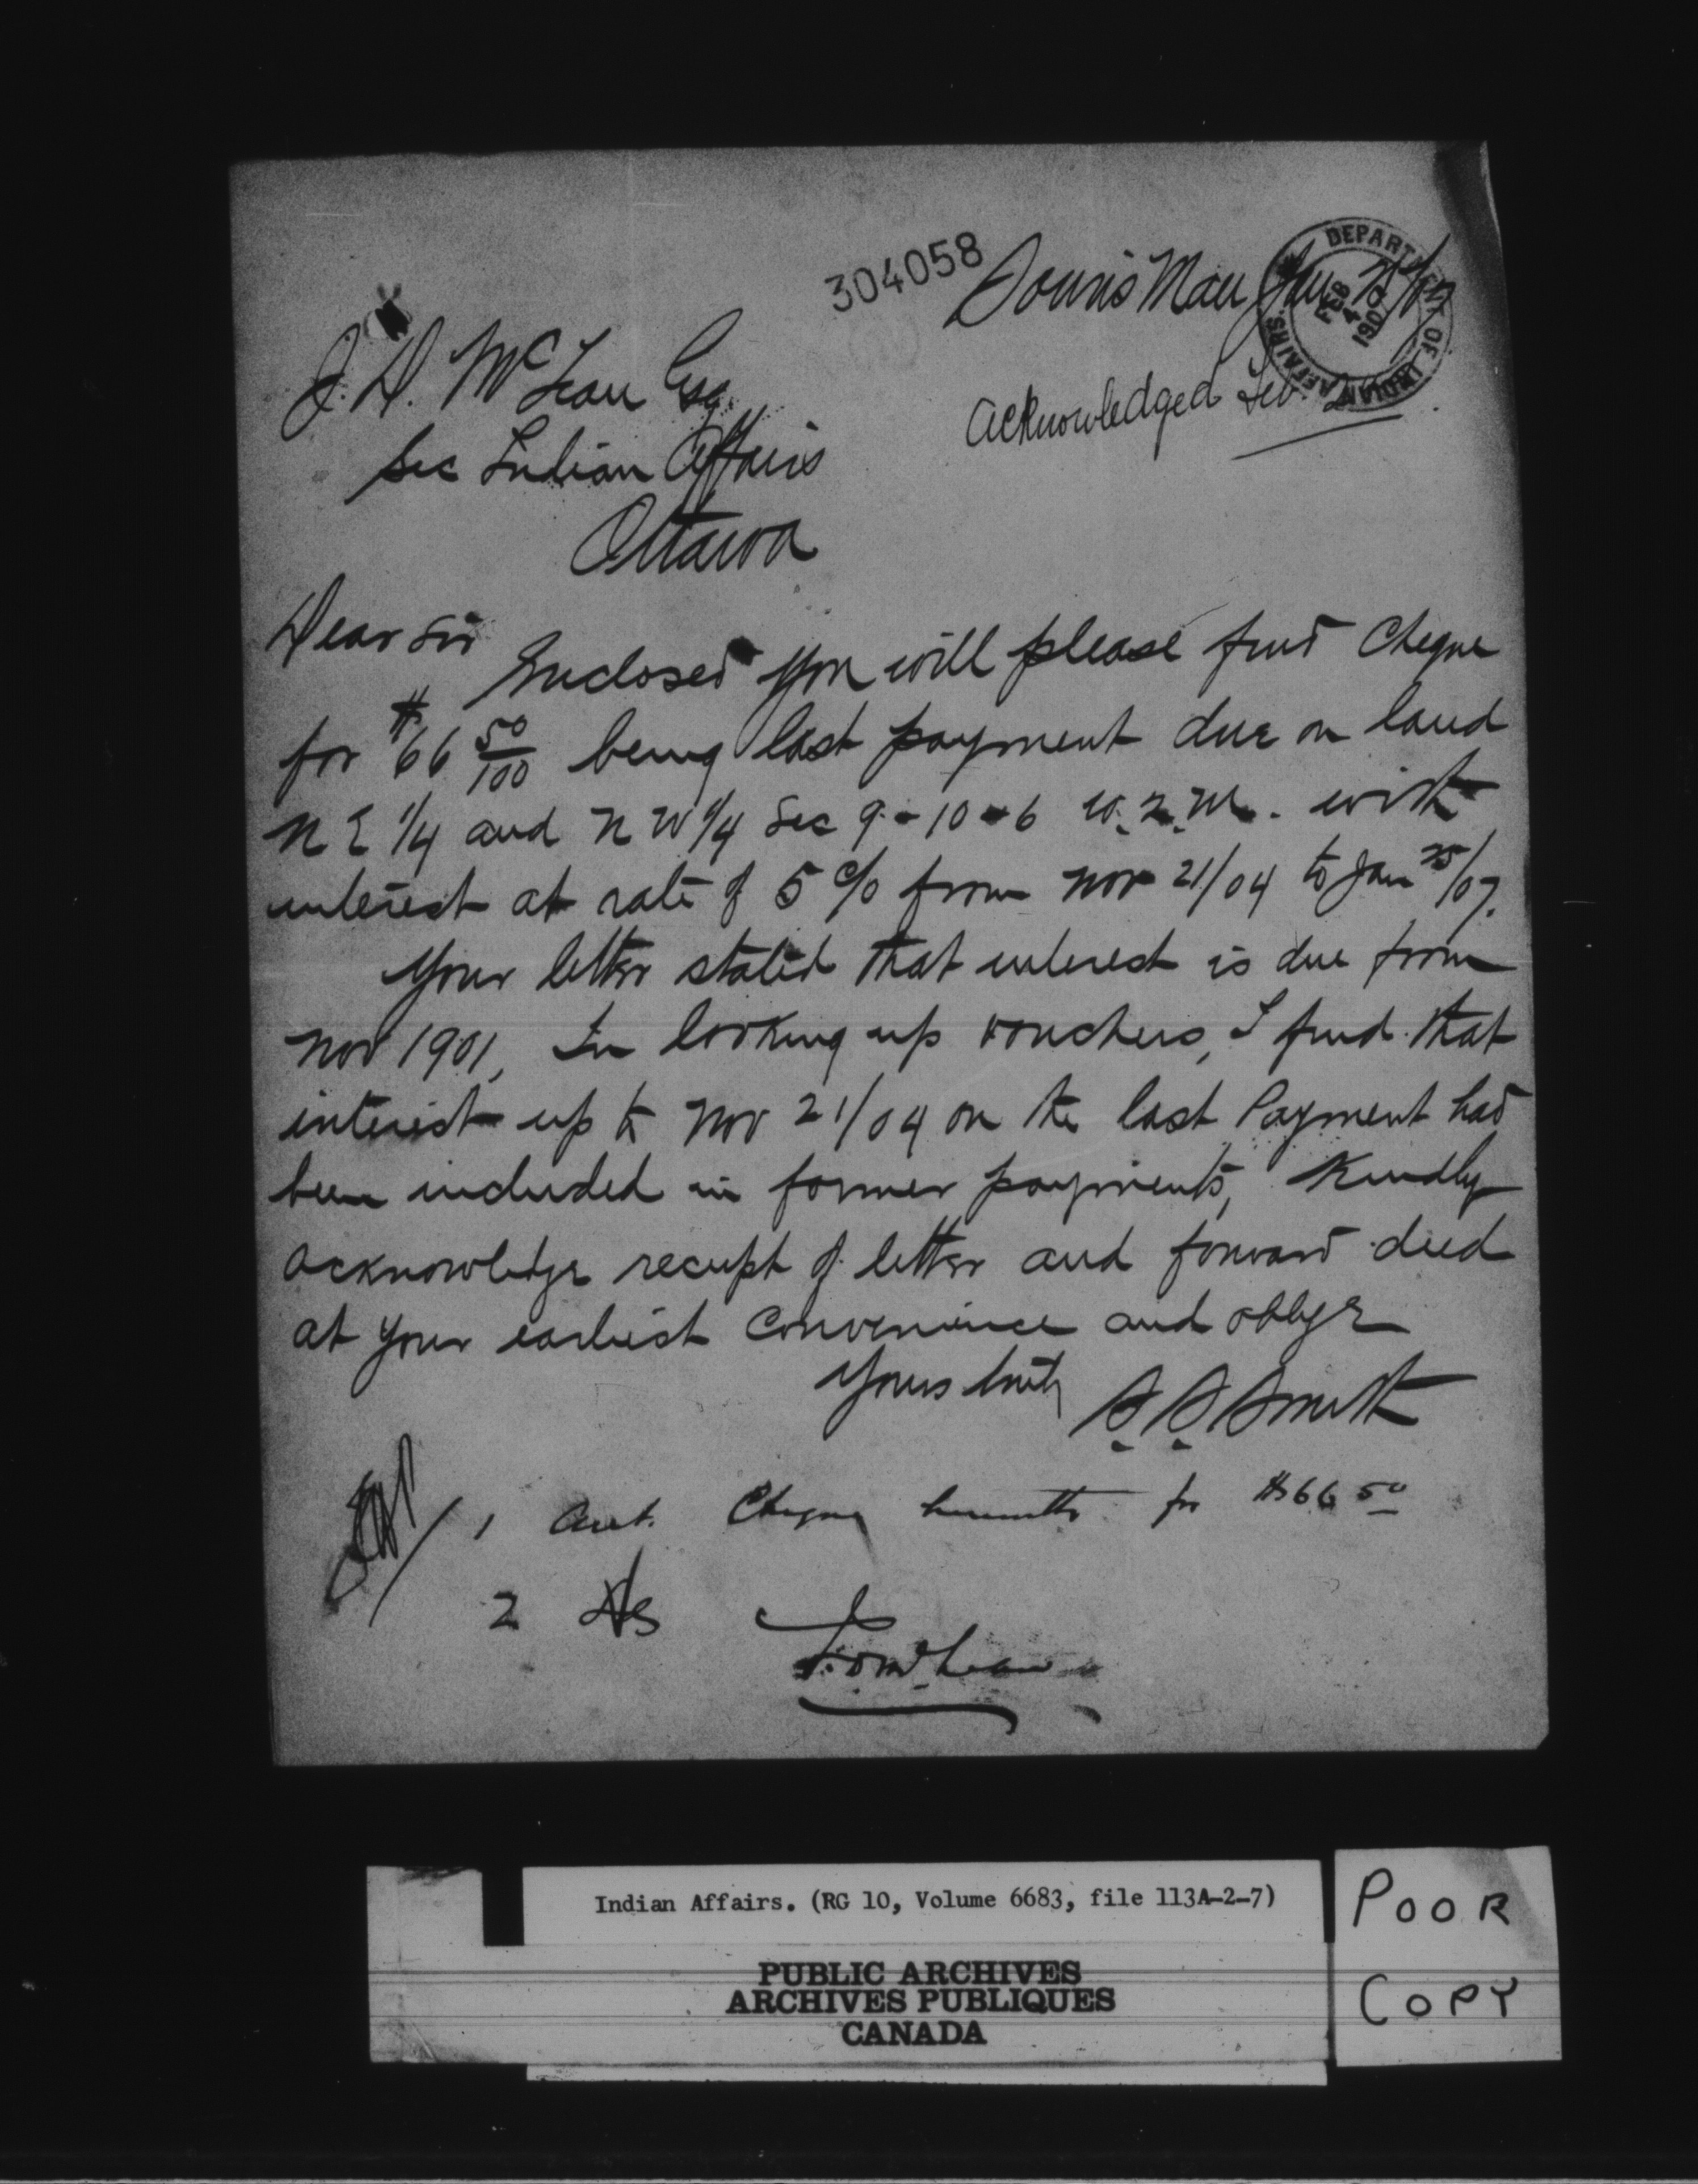 304058
Souris Man Jan
DEPARTMENT OF INDIAN AFFAIRS.
FEB 4 1907
J. D. McLean Esq.
Acknowledged Feb
Sec Indian Affairs
Ottawa
Dear Sir
Enclosed you will please find Cheque
for $66 50/100 being last payment due on land
N E 1/4 and N W 1/4 Sec 9 - 10 - 6 W. 2. M. with
interest at rate of 5 % from Nov 21/04 to Jan 25/07.
Your letter stated that interest is due from
Nov 1901, In looking up vouchers, I find that
interest up to Nov 21/04 on the last Payment had
been included in former payments, Kindly
acknowledge receipt of letter and forward deed
at your earliest Convenience and oblige
Yours truly S. S. Smith
1 Acct. Cheque herewith for $66 50
2
Indian Affairs. (RG 10, Volume 6683, file 113A-2-7)
PUBLIC ARCHIVES
ARCHIVES PUBLIQUES
CANADA
POOR
COPY